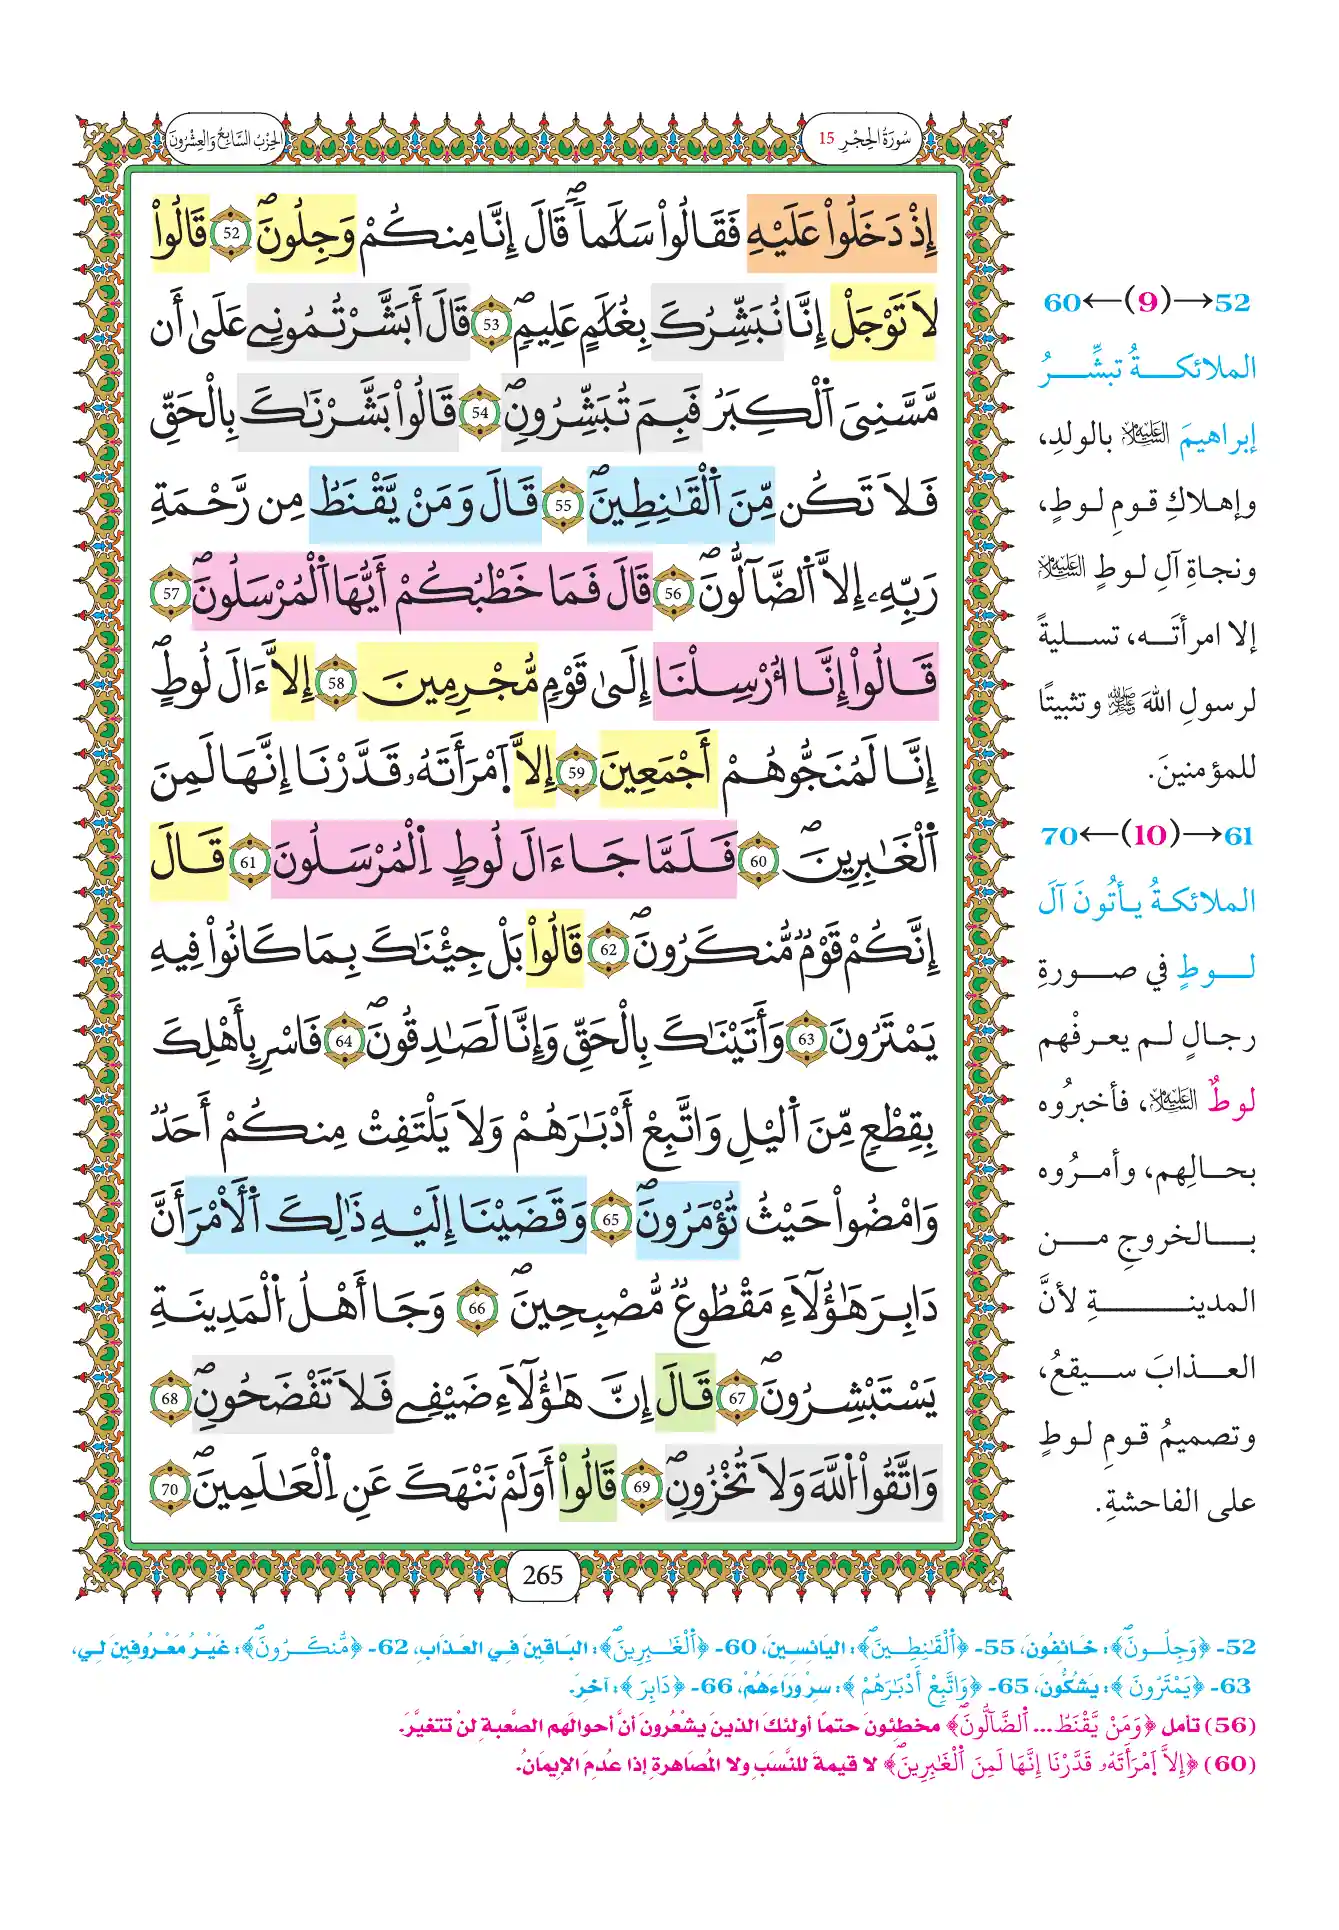 سُورَةُ الحِجْرِ 15
الحِزْبُ السَّابِعُ وَالعِشْرُونَ
إِذْ دَخَلُواْ عَلَيْهِ فَقَالُواْ سَلَٰماٗۖ قَالَ إِنَّا مِنكُمْ وَجِلُونَۖ 52 قَالُواْ
لَا تَوْجَلْ إِنَّا نُبَشِّرُكَ بِغُلَٰمٍ عَلِيمٖۖ 53 قَالَ أَبَشَّرْتُمُونِے عَلَىٰ أَن
مَّسَّنِىَ اَ۬لْكِبَرُ فَبِمَ تُبَشِّرُونِۖ 54 قَالُواْ بَشَّرْنَٰكَ بِالْحَقِّ
فَلَا تَكُن مِّنَ اَ۬لْقَٰنِطِينَۖ 55 قَالَ وَمَنْ يَّقْنَطُ مِن رَّحْمَةِ
رَبِّهِۦ إِلَّا اَ۬لضَّآلُّونَۖ 56 قَالَ فَمَا خَطْبُكُمْ أَيُّهَا اَ۬لْمُرْسَلُونَۖ 57
قَالُواْ إِنَّا أُرْسِلْنَا إِلَىٰ قَوْمٖ مُّجْرِمِينَ 58 إِلَّا ءَالَ لُوطٍۖ
إِنَّا لَمُنَجُّوهُمْ أَجْمَعِينَ 59 إِلَّا اَ۪مْرَأَتَهُۥ قَدَّرْنَا إِنَّهَا لَمِنَ
اَ۬لْغَٰبِرِينَۖ 60 فَلَمَّا جَاءَ الَ لُوطٍ اِ۬لْمُرْسَلُونَ 61 قَالَ
إِنَّكُمْ قَوْمٞ مُّنكَرُونَۖ 62 قَالُواْ بَلْ جِئْنَٰكَ بِمَا كَانُواْ فِيهِ
يَمْتَرُونَ 63 وَأَتَيْنَٰكَ بِالْحَقِّ وَإِنَّا لَصَٰدِقُونَۖ 64 فَاسْرِ بِأَهْلِكَ
بِقِطْعٖ مِّنَ اَ۬ليْلِ وَاتَّبِعْ أَدْبَٰرَهُمْ وَلَا يَلْتَفِتْ مِنكُمْ أَحَدٞ
وَامْضُواْ حَيْثُ تُؤْمَرُونَۖ 65 وَقَضَيْنَا إِلَيْهِ ذَٰلِكَ اَ۬لْأَمْرَ أَنَّ
دَابِرَ هَٰؤُلَاءِ مَقْطُوعٞ مُّصْبِحِينَۖ 66 وَجَا أَهْلُ اُ۬لْمَدِينَةِ
يَسْتَبْشِرُونَۖ 67 قَالَ إِنَّ هَٰؤُلَاءِ ضَيْفِے فَلَا تَفْضَحُونِۖ 68
وَاتَّقُواْ اُ۬للَّهَ وَلَا تُخْزُونِۖ 69 قَالُواْ أَوَلَمْ نَنْهَكَ عَنِ اِ۬لْعَٰلَمِينَۖ 70
265
52→(9)←60
الملائكةُ تبشِّرُ
إبراهيمَ عليه السلام بالولدِ،
وإهلاكِ قومِ لوطٍ،
ونجاةِ آلِ لوطٍ عليه السلام
إلا امرأتَه، تسليةً
لرسولِ اللهَ ﷺ وتثبيتًا
للمؤمنينَ.
61→(10)←70
الملائكةُ يأتُونَ آلَ
لوطٍ في صورةِ
رجالٍ لم يعرفْهم
لوطٌ عليه السلام، فأخبرُوه
بحالِهم، وأمرُوه
بالخروجِ من
المدينةِ لأنَّ
العذابَ سيقعُ،
وتصميمُ قومِ لوطٍ
على الفاحشةِ.
52- ﴿وَجِلُونَۖ﴾: خَائِفُونَ، 55- ﴿اَ۬لْقَٰنِطِينَۖ﴾: اليَائسِينَ، 60- ﴿اَ۬لْغَٰبِرِينَۖ﴾: البَاقِينَ فِي العَذَابِ، 62- ﴿مُّنكَرُونَۖ﴾: غَيْرُ مَعْرُوفِينَ لِي،
63- ﴿يَمْتَرُونَ﴾: يَشُكُّونَ، 65- ﴿وَاتَّبِعْ أَدْبَٰرَهُمْ﴾: سِرْ وَرَاءَهُمْ، 66- ﴿دَابِرَ﴾: آخِرَ.
(56) تأمل ﴿وَمَنْ يَّقْنَطُ ... اَ۬لضَّآلُّونَۖ﴾ مخطئون حتمًا أولئكَ الذينَ يشْعُرونَ أنَّ أحوالَهم الصَّعبةِ لنْ تتغيَّرَ.
(60) ﴿إِلَّا اَ۪مْرَأَتَهُۥ قَدَّرْنَا إِنَّهَا لَمِنَ اَ۬لْغَٰبِرِينَۖ﴾ لا قيمةَ للنَّسَبِ ولا المُصَاهرةِ إذا عُدِمَ الإيمَانُ.